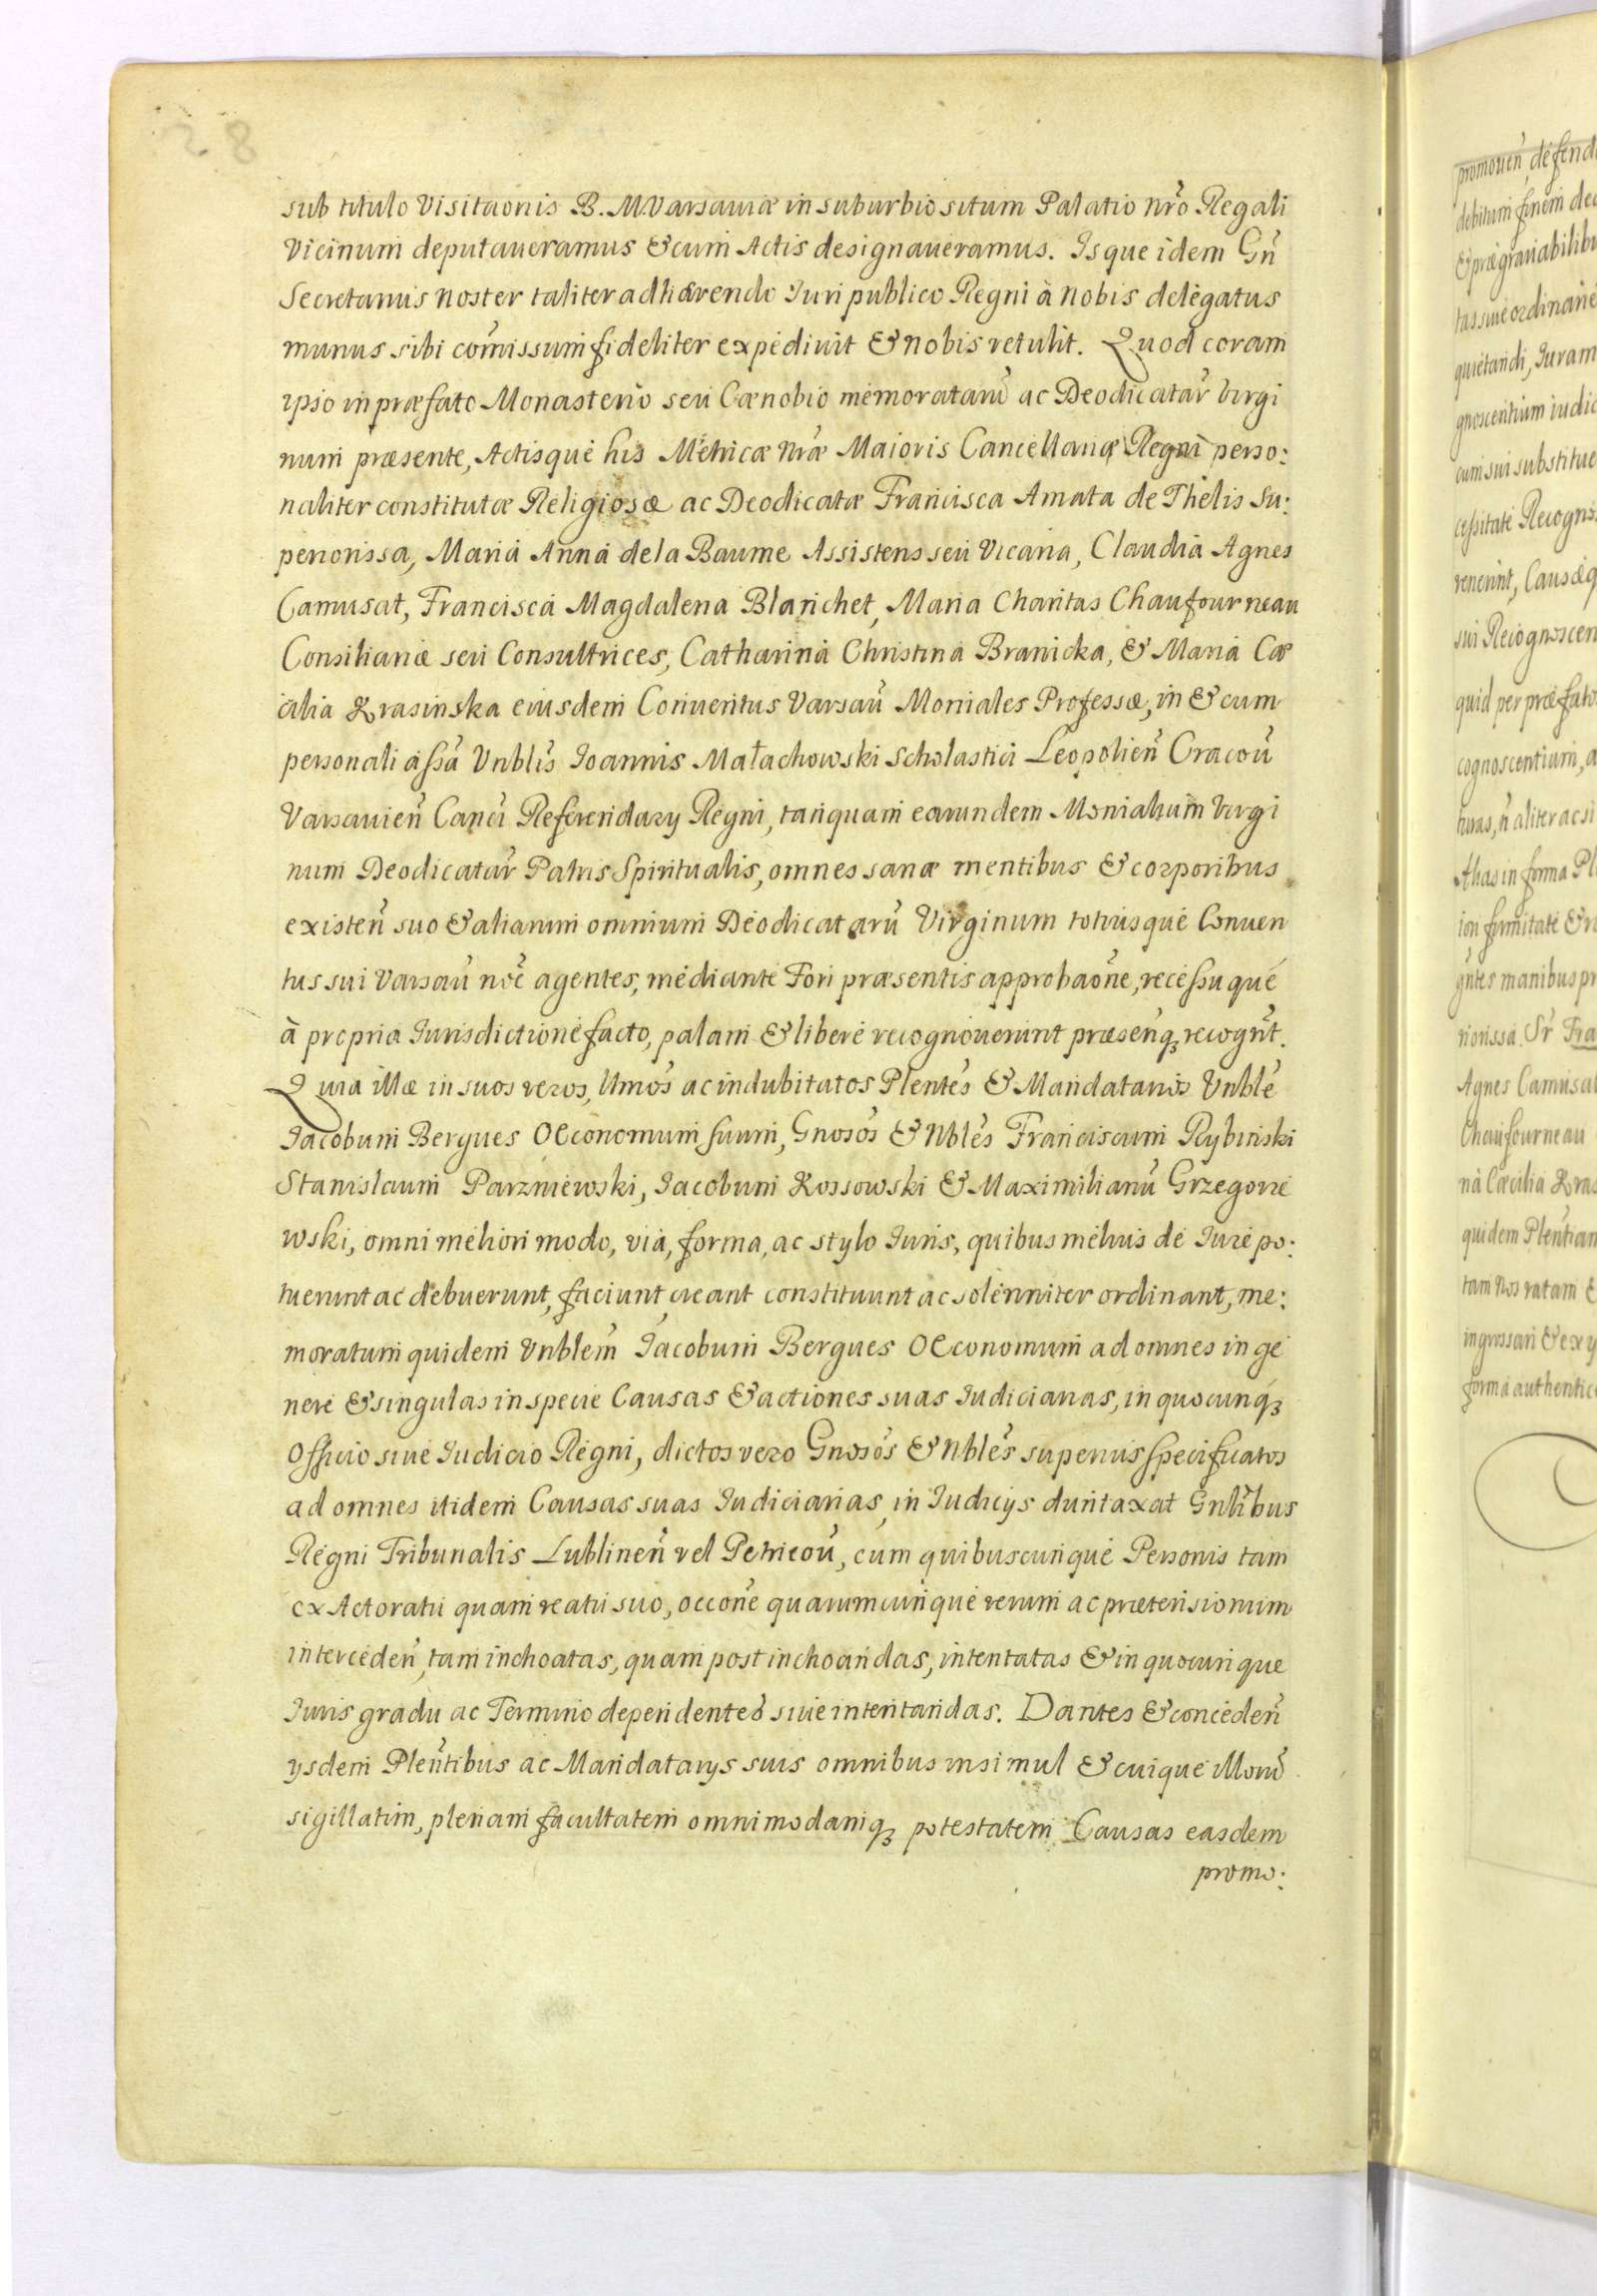 28
sub titulo Visitaonis B. M. Varsaviæ in suburbio situm Palatio nr̃o Regali
Vicinum deputaueramus & cum Actis designaueramus. Isque idem Gñ
Secretarius noster taliter adhærendo Iuri publico Regni à nobis delegatus
munus sibi com̃issum fideliter expediuit & nobis retulit. Quod coram
ipso in præfato Monasterio seu Cœnobio memoratarũ ac Deodicatar̃ Virgi
num præsente, Actisque his Metricæ nr̃æ Maioris Cancellariæ Regni perso:
naliter constitutæ Religiosæ ac Deodicatæ Francisca Amata de Thelis Su:
periorissa, Maria Anna de la Baume Assistens seu Vicaria, Claudia Agnes
Camusat, Francisca Magdalena Blanchet, Maria Charitas Chaufourneau
Consiliariæ seu Consultrices, Catharina Christina Branicka, & Maria Cæ
cilia Krasinska eiusdem Conuentus Varsaũ Moniales Professæ, in & cum
personali assã Vnblis̃ Ioannis Małachowski Scholastici Leopolieñ Cracoũ
Varsauieñ Canci̇ Referendarÿ Regni, tanquam earundem Monialium Virgi
num Deodicatar̃ Patris Spiritualis, omnes sanæ mentibus & corporibus
existeñ suo & aliarum omnium Deodicatarũ Virginum totiusque Conuen
tus sui Varsaũ noẽ agentes, mediante Fori præsentis approbaõne, recessuque
à propria Iurisdictione facto, palam & liberè recognouerunt præsenq̃ꝫ recogñt.
Quia illæ in suos veros, l̃tmos ac indubitatos Pl̃entes & Mandatarios Vnblẽ
Iacobum Bergues Œconomum suum, Gnosõs & Nblẽs Franciscum Rybinski
Stanisłaum Parzniewski, Iacobum Kossowski & Maximilianũ Grzegorze
wski, omni meliori modo, via, forma, ac stylo Iuris, quibus melius de Iure po:
tuerunt ac debuerunt, faciunt creant constituunt ac solenniter ordinant, me:
moratum quidem Vnblem̃ Iacobum Bergues Œconomum ad omnes in ge
nere & singulas in specie Causas & actiones suas Iudiciarias, in quocunqꝫ
Officio siue Iudicio Regni, dictos vero Gnosõs & Nblẽs superius specificatos
ad omnes itidem Causas suas Iudiciarias, in Iudicÿs duntaxat Gñlibus
Regni Tribunalis Lublineñ vel Petricoũ, cum quibuscunque Personis tam
ex Actoratu quam reatu suo, occõne quarumcunque rerum ac prætensionum
intercedeñ, tam inchoatas, quam post inchoandas, intentatas & in quocunque
Iuris gradu ac Termino dependentes siue intentandas. Dantes & concedeñ
ÿsdem Pleñtibus ac Mandatarÿs suis omnibus insimul & cuique illorũ
sigillatim, plenam facultatem omnimodamqꝫ potestatem Causas easdem
promo:
promoueñ, defend
debitum finem de
& prægrauabilibu
tas siue ordinarie
quietandi, Iuram
gnoscentium iudic
cum sui substitue
cessitate Recogno
renerint, Causæq
sui Recognoscen
quid per præfato
cognoscentium, a
turas, ñ aliter ac si
Alias in forma Pl
ion firmitate & r
gñtes manibus pr
riorissa. Sr̃ Fra
Agnes Camusat
Chaufourneau
na Cæcilia Kras
quidem Plen̄tiam
tam Nos ratam &
ingrossari & ex y
forma authentic